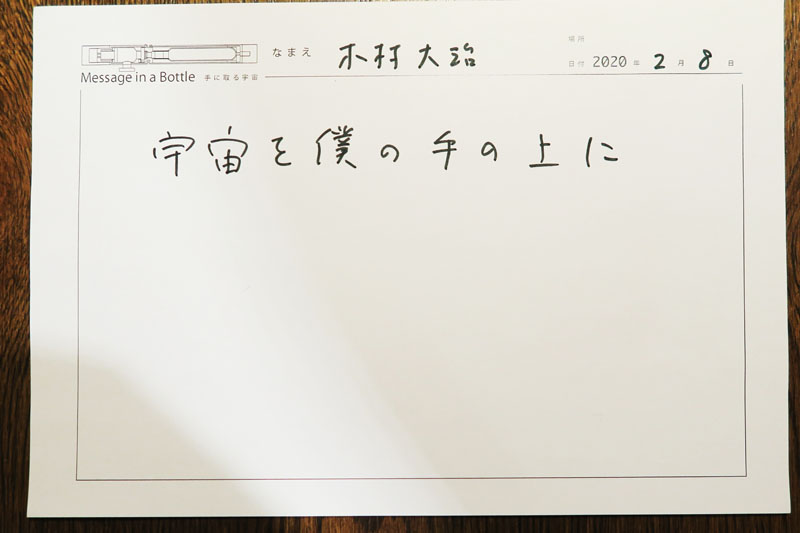 なまえ 木村大治
場所
日付 2020 年 2 月 8 日
Message in a Bottle 手に取る宇宙
宇宙を僕の手の上に